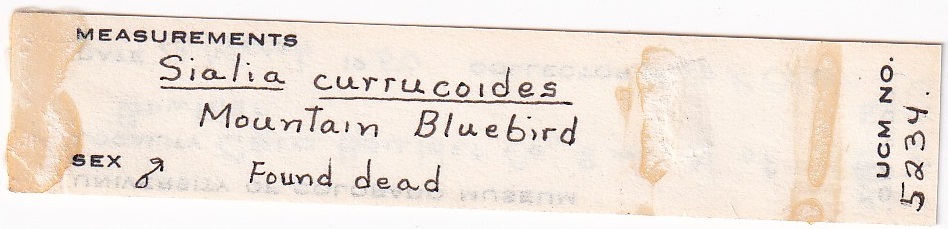 MEASUREMENTS
Sialia currucoides
Mountain Bluebird
SEX ♂ Found dead
UCM NO. 5234.